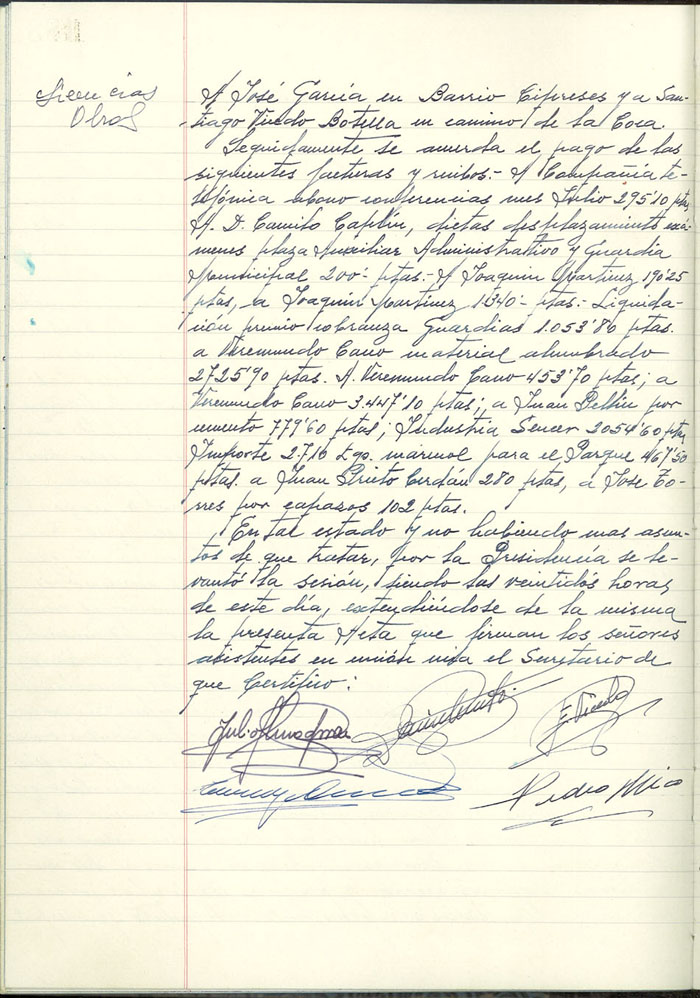 Licencias
Obras
A José García en Barrio Cipreses y a San-
tiago Viñedo Botella en camino de la Coca.
Seguidamente se acuerda el pago de las
siguientes facturas y recibos.- A Compañía te-
lefónica abono conferencias mes Julio 295'10 ptas,
A. D. Camilo Caplín, dietas desplazamiento exá-
menes plaza Auxiliar Administrativo y Guardia
Municipal 200'- ptas.- A Joaquín Martínez 190'25
ptas, a Joaquín Martínez 1340'- ptas.- Liquida-
ción premio cobranza Guardias 1.053'86 ptas.
a Veremundo Cano material alumbrado
2725'90 ptas. A. Veremundo Cano 453'70 ptas; a
Veremundo Cano 3.447'10 ptas; a Juan Bellin por
cemento 779'60 ptas; Industria Sencer 2054'60 ptas,
Importe 2.710 kgs. marmol para el Parque 467'50
ptas. a Juan Prieto Cerdán 280 ptas, a Jose To-
rres por capazos 102 ptas.
En tal estado y no habiendo mas asun-
tos de que tratar, por la Presidencia se le-
vantó la sesión, siendo las veintidós horas
de este día, extendiéndose de la misma
la presenta Acta que firman los señores
asistentes en unión mia el Secretario de
que Certifico:
Pedro Mio